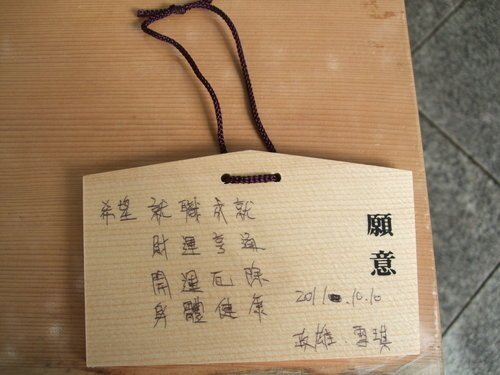 願意
希望 就職成就
財運亨通
開運厄除
身體健康
2011.10.10
英雄、雪琪